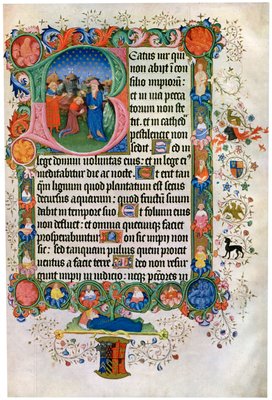 Beatus uir qui
non abijt i con
silio impiorū:
et in uia pecca
torum non ste
tit: et in cathed
pestilencie non
sedit Sed in
lege domini voluntas eius: et in lege ei
meditabitur die ac nocte Et erit tan
quam lignum quod plantatum est secus
decursus aquarum: quod fructū suum
dabit in tempore suo Et folium eius
non defluet: et omnia quecūq; faciet
prosperabuntur Non sic impij non
sic: sed tanquam puluis quem proicit
uentus a facie terre Ideo non resur
gunt impij in iudicio: neq; pctōres in